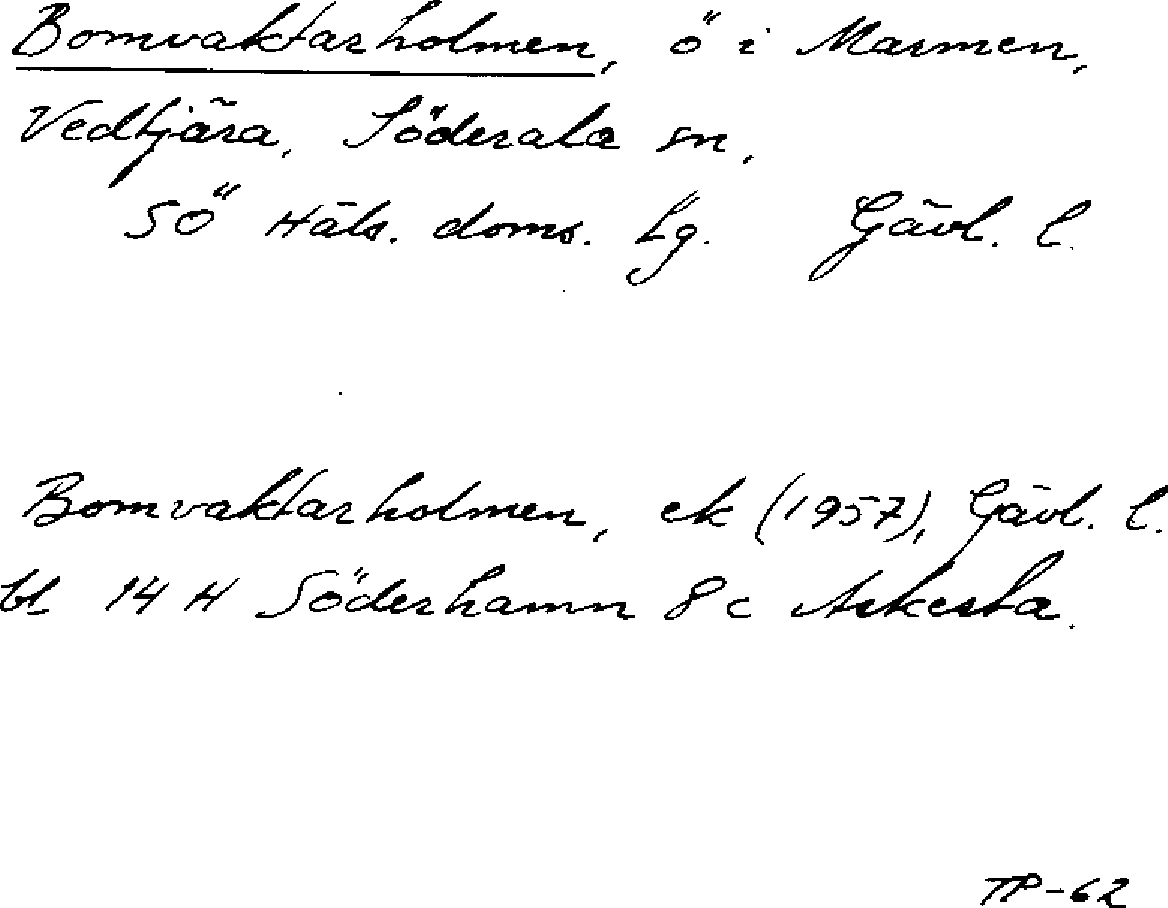 Bomvaktarholmen, ö i Marmen,
Vedtjära, Söderala sn,
SÖ Häls. doms. Lg. Gävl. l.
Bomvaktarholmen, ek (1957), Gävl. l.
bl 14 H Söderhamn 8 c Askesta.
TP-62